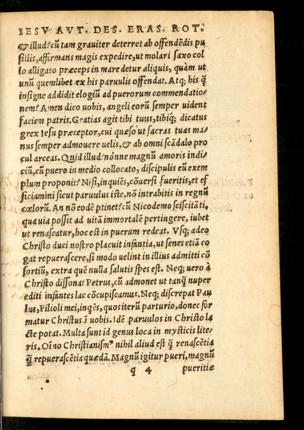 IESV AVT. DES. ERAS. ROT.
& illud? cũ tam grauiter deterret ab offendẽdis pu
sillis, affirmans magis expedire, ut molari saxo col
lo alligato præceps in mare detur aliquis, quàm ut
unũ quemlibet ex his paruulis offendat. Atq; his q̃
insigne addidit elogiũ ad puerorum commendatio
nem? Amen dico uobis, angeli eorũ semper uident
faciem patris. Gratias agit tibi tuus, tibiq; dicatus
grex Iesu præceptor, cui quæso ut sacras tuas ma/
nus semper admouere uelis, & ab omni scãdalo pro
cul arceas. Quid illud? nónne magnũ amoris indi/
ciũ, cũ puero in medio collocato, discipulis eũ exem
plum proponit? Nisi, inquiẽs, cõuersi fueritis, et ef
ficiamini sicut paruulus iste, nõ intrabitis in regnũ
cælorũ. An nõ eodẽ ptinet? cũ Nicodemo sciscitãti,
qua uia possit ad uitã immortalẽ pertingere, iubet
ut renascatur, hoc est in puerum redeat. Vsq; adeo
Christo duci nostro placuit infantia, ut senes etiã co
gat repuerascere, si modo uelint in illius admitti cõ
sortiũ, extra quẽ nulla salutis spes est. Neq; uero à
Christo dissonat Petrus, cũ admonet ut tanq̃ nuper
editi infantes lac cõcupiscamus. Neq; discrepat Pau
lus, Filioli mei, inqẽs, quos iterũ parturio, donec for
matur Christus ĩ uobis. Idẽ paruulos in Christo la
cte potat. Multa sunt id genus loca in mysticis lite/
ris. Oĩno Christianismꝰ nihil aliud est q̃ renascẽtia
q̃ repuerascẽtia quædã. Magnũ igitur pueri, magnũ
q 4 pueritiæ